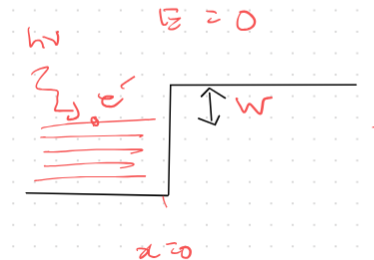 E = 0
hν
e⁻
W
x=0